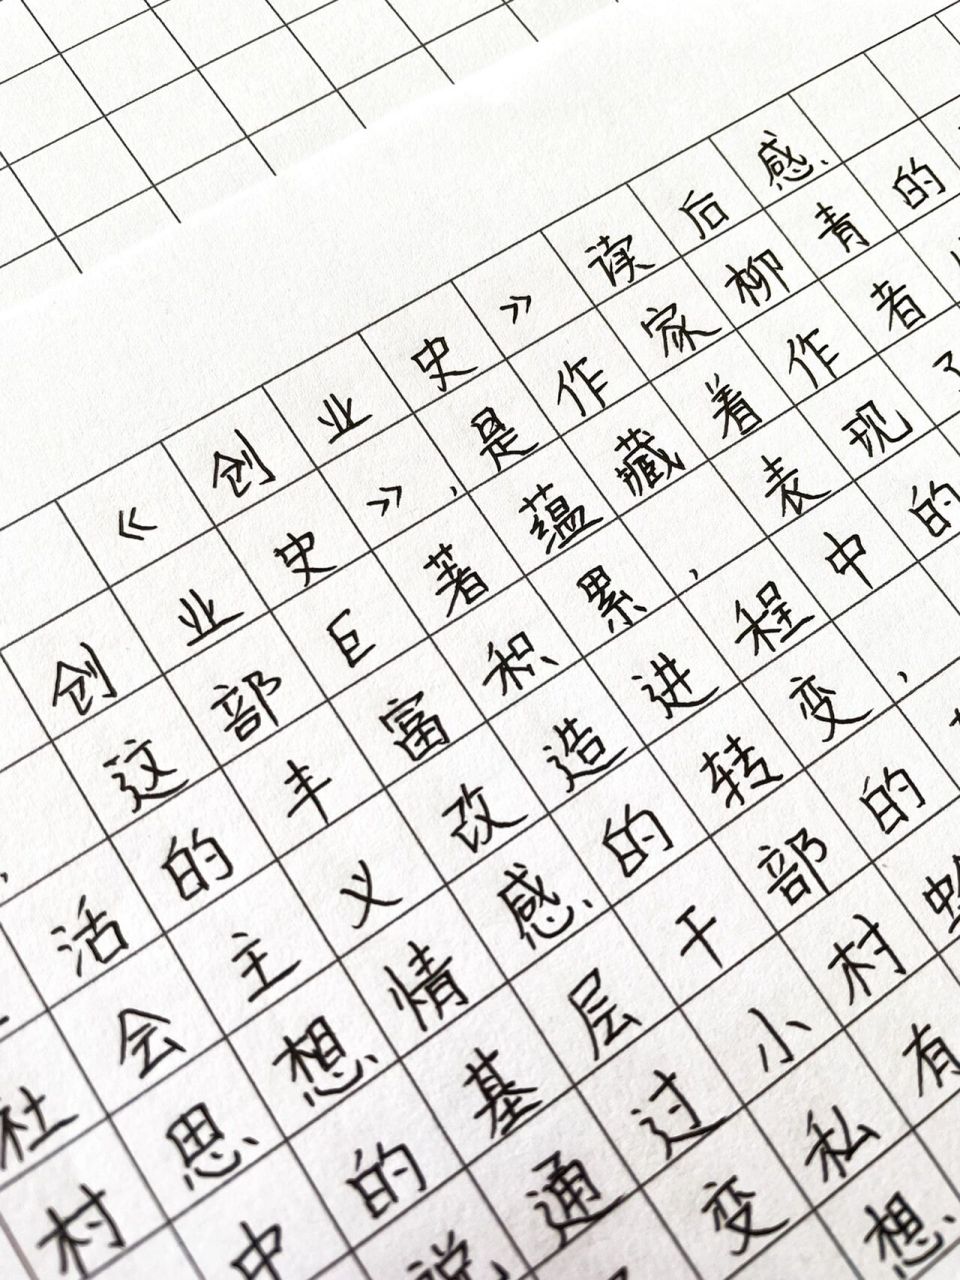 《创业史》读后感
创业史》，是作家柳青的
，这部巨著蕴藏着作者
活的丰富积累，表现了
社会主义改造进程中的
村思想情感的转变，
中的基层干部的
说通过小村
变私有
想